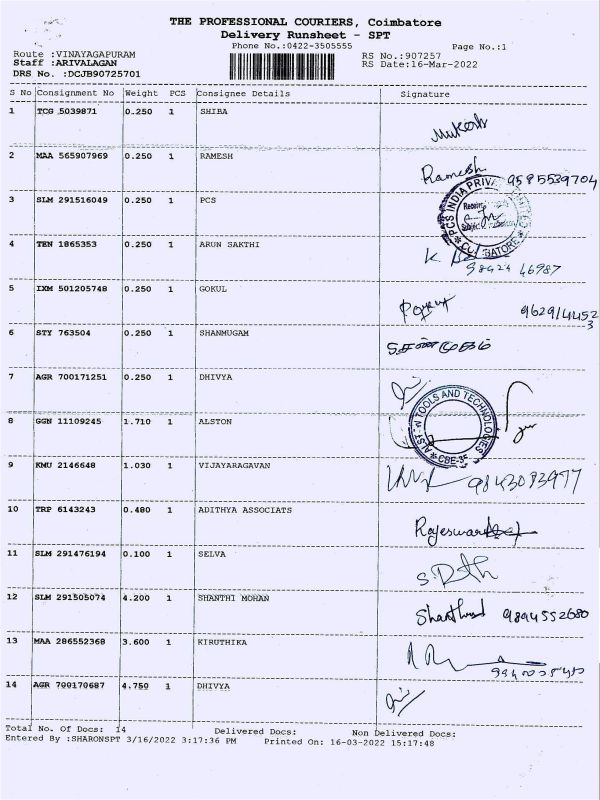 THE PROFESSIONAL COURIERS, Coimbatore
Delivery Runsheet - SPT
Phone No.:0422-3505555
Page No.:1
Route :VINAYAGAPURAM
RS No.:907257
Staff :ARIVALAGAN
RS Date:16-Mar-2022
DRS No. :DCJB90725701
S No Consignment No Weight PCS Consignee Details Signature
1 TCG 5039871 0.250 1 SHIBA
2 MAA 565907969 0.250 1 RAMESH
Ramesh 9585539704
3 SLM 291516049 0.250 1 PCS
PCS INDIA PRIVATE
4 TEN 1865353 0.250 1 ARUN SAKTHI
5 IXM 501205748 0.250 1 GOKUL
6 STY 763504 0.250 1 SHANMUGAM
7 AGR 700171251 0.250 1 DHIVYA
8 GGN 11109245 1.710 1 ALSTON
TOOLS AND TECHNOLOGIES
9 KMU 2146648 1.030 1 VIJAYARAGAVAN
9843083977
10 TRP 6143243 0.480 1 ADITHYA ASSOCIATS
11 SLM 291476194 0.100 1 SELVA
12 SLM 291505074 4.200 1 SHANTHI MOHAN
9894552680
13 MAA 286552368 3.600 1 KIRUTHIKA
14 AGR 700170687 4.750 1 DHIVYA
Total No. Of Docs: 14 Delivered Docs: Non Delivered Docs:
Entered By :SHARONSPT 3/16/2022 3:17:36 PM Printed On: 16-03-2022 15:17:48